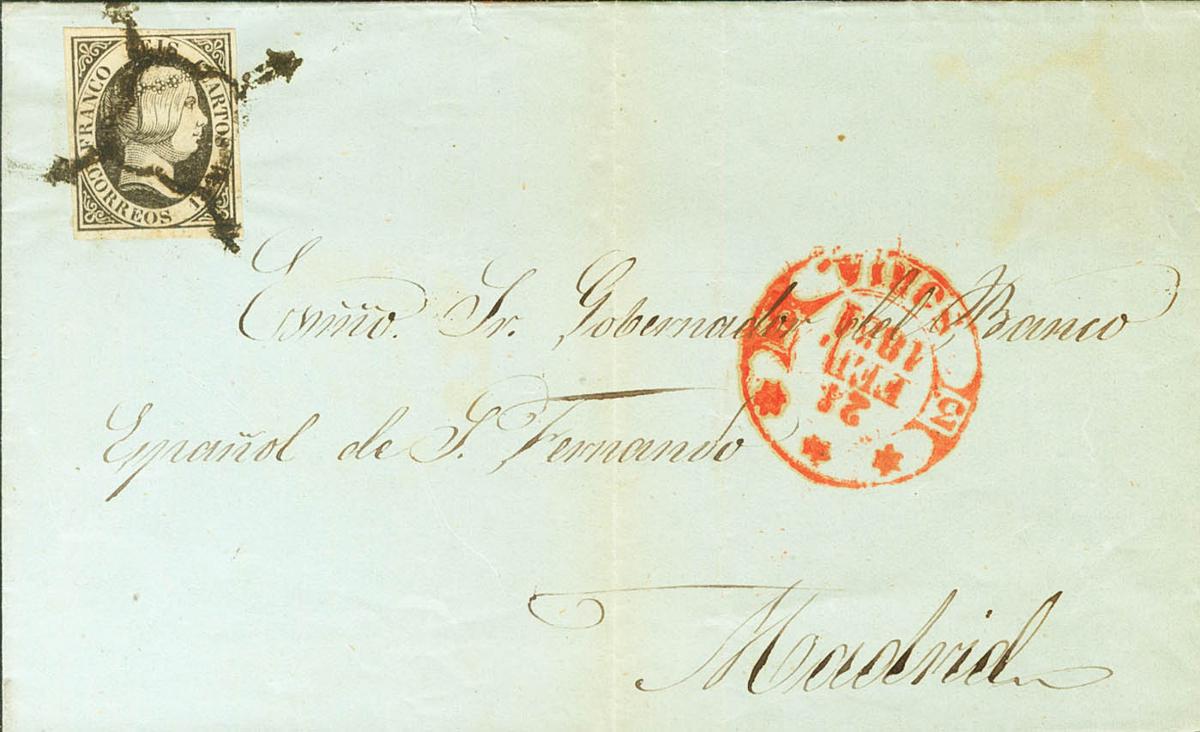 FRANCO SEIS CUARTOS
CORREOS 1851
Exmo. Sr. Gobernador del Banco
Español de S. Fernando
Madrid
24
FEB
1851